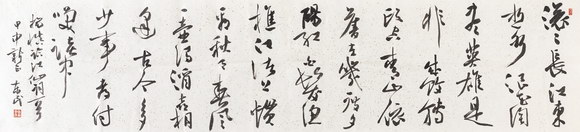 滚々長江東
逝水浪花淘
尽英雄是
非成敗轉
頭空青山依
舊在幾度夕
陽紅白髮漁
樵江渚上慣
看秋月春風
一壺濁酒喜相
逢古今多
少事都付
笑談中
楊慎臨江仙
甲申